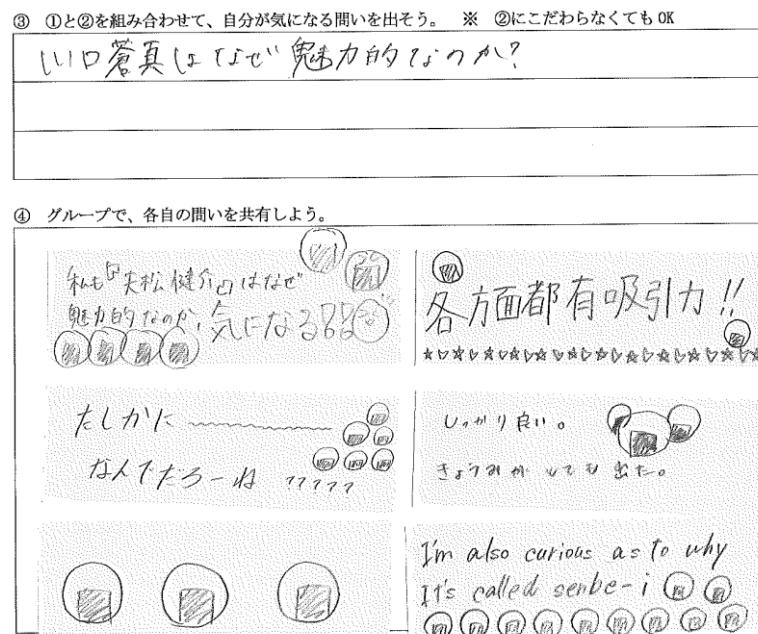 ③ ①と②を組み合わせて、自分が気になる問いを出そう。 ※ ②にこだわらなくてもOK
川口蒼真はなぜ魅力的なのか?
④ グループで、各自の問いを共有しよう。
私も『夫松健介』はなぜ
魅力的なのか、気になる
各方面都有吸引力!!
たしかに
なんでだろーね ？？？？？
しっかり良い。
きょうみがとても出た。
I'm also curious as to why
It's called senbe-i